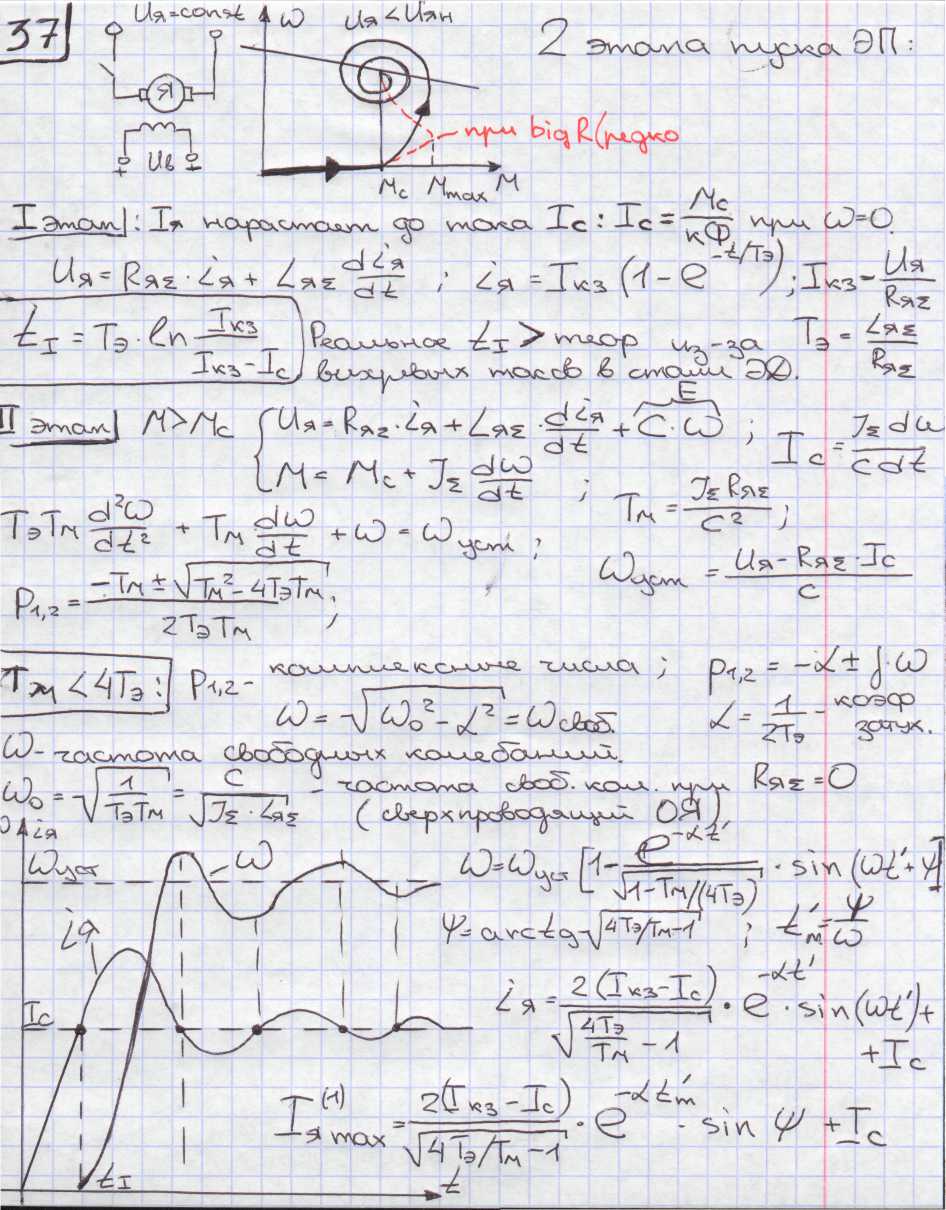 37
Uя=const
Я
Uв
+ −
ω
Uя < Uян
Mc Mmax M
при big R (редко
2 этапа пуска ЭП:
I этап: Iя нарастает до тока Ic: Ic = Mc/кФ при ω=0.
Uя = RяΣ · iя + LяΣ diя/dt ; iя = Iкз (1 − e^(−t/Tэ)); Iкз = Uя/RяΣ
tI = Tэ · ln Iкз/(Iкз − Ic)
Реальное tI > теор из-за
вихревых токов в стали ЭД.
Tэ = LяΣ/RяΣ
II этап M > Mc
Uя = RяΣ · iя + LяΣ · diя/dt + C · ω ; Ic = JΣ dω/c dt
E
M = Mc + JΣ dω/dt ; Tм = JΣ RяΣ/C² ;
TэTм d²ω/dt² + Tм dω/dt + ω = ωуст ;
ωуст = (Uя − RяΣ · Ic)/c
p1,2 = (−Tм ± √(Tм² − 4TэTм))/2TэTм ;
Tм < 4Tэ: p1,2 - комплексные числа ; p1,2 = −α ± j·ω
ω = √(ω0² − α²) = ωсвоб. α = 1/2Tэ - коэф затух.
ω - частота свободных колебаний.
ω0 = √(1/TэTм) = C/√(JΣ · LяΣ) - частота своб. кол. при RяΣ = 0
(сверхпроводящий ОЯ)
iя
ωуст
ω
iя
Ic
tI
t
ω = ωуст [1 − e^(−αt')/√(1−Tм/(4Tэ)) · sin(ωt' + ψ]
ψ = arctg √(4Tэ/Tм−1) ; t'м = ψ/ω
iя = 2(Iкз − Ic)/√(4Tэ/Tм − 1) · e^(−αt') · sin(ωt') +
+ Ic
Iя max^(1) = 2(Iкз − Ic)/√(4Tэ/Tм−1) · e^(−αt'm) · sin ψ + Ic